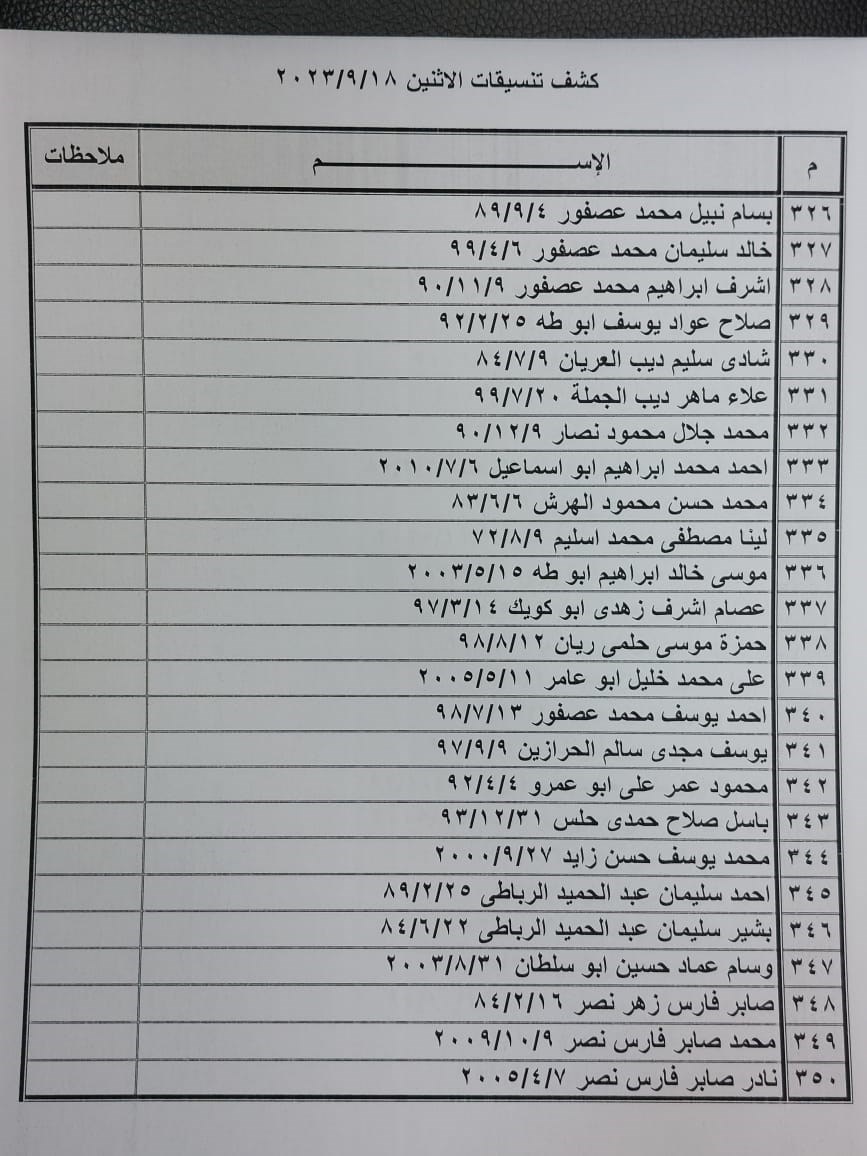 كشف تنسيقات الاثنين ٢٠٢٣/٩/١٨
م الإســـــــــم ملاحظات
٣٢٦ بسام نبيل محمد عصفور ٨٩/٩/٤
٣٢٧ خالد سليمان محمد عصفور ٩٩/٤/٦
٣٢٨ اشرف ابراهيم محمد عصفور ٩٠/١١/٩
٣٢٩ صلاح عواد يوسف ابو طه ٩٢/٢/٢٥
٣٣٠ شادى سليم ديب العريان ٨٤/٧/٩
٣٣١ علاء ماهر ديب الجملة ٩٩/٧/٢٠
٣٣٢ محمد جلال محمود نصار ٩٠/١٢/٩
٣٣٣ احمد محمد ابراهيم ابو اسماعيل ٢٠١٠/٧/٦
٣٣٤ محمد حسن محمود الهرش ٨٣/٦/٦
٣٣٥ لينا مصطفى محمد اسليم ٧٢/٨/٩
٣٣٦ موسى خالد ابراهيم ابو طه ٢٠٠٣/٥/١٥
٣٣٧ عصام اشرف زهدى ابو كويك ٩٧/٣/١٤
٣٣٨ حمزة موسى حلمى ريان ٩٨/٨/١٢
٣٣٩ على محمد خليل ابو عامر ٢٠٠٥/٥/١١
٣٤٠ احمد يوسف محمد عصفور ٩٨/٧/١٣
٣٤١ يوسف مجدى سالم الحرازين ٩٧/٩/٩
٣٤٢ محمود عمر على ابو عمرو ٩٢/٤/٤
٣٤٣ باسل صلاح حمدى حلس ٩٣/١٢/٣١
٣٤٤ محمد يوسف حسن زايد ٢٠٠٠/٩/٢٧
٣٤٥ احمد سليمان عبد الحميد الرباطى ٨٩/٢/٢٥
٣٤٦ بشير سليمان عبد الحميد الرباطى ٨٤/٦/٢٢
٣٤٧ وسام عماد حسين ابو سلطان ٢٠٠٣/٨/٣١
٣٤٨ صابر فارس زهر نصر ٨٤/٢/١٦
٣٤٩ محمد صابر فارس نصر ٢٠٠٩/١٠/٩
٣٥٠ نادر صابر فارس نصر ٢٠٠٥/٤/٧